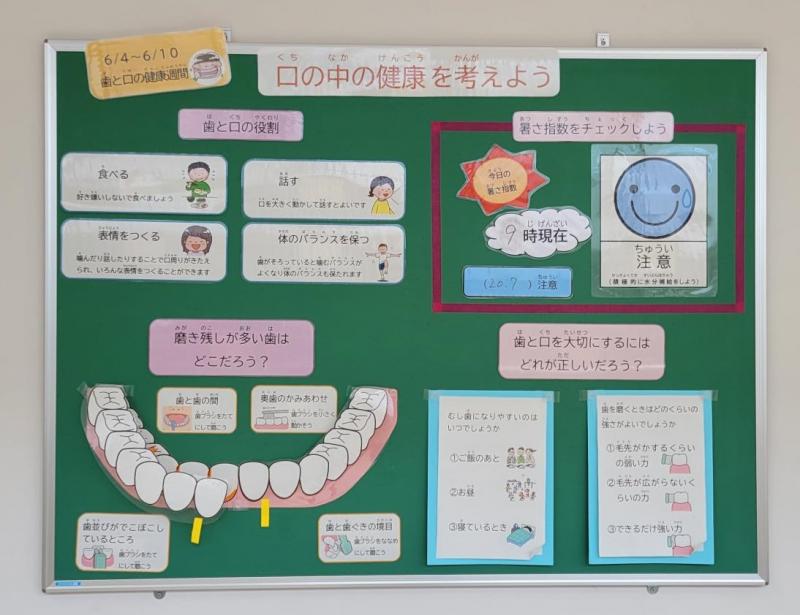 6/4～6/10
歯と口の健康週間
口の中の健康を考えよう
歯と口の役割
食べる
好き嫌いしないで食べましょう
話す
口を大きく動かして話すとよいです
表情をつくる
噛んだり話したりすることで口周りがきたえ
られ、いろんな表情をつくることができます
体のバランスを保つ
歯がそろっていると噛むバランスが
よくなり体のバランスも保たれます
暑さ指数をチェックしよう
今日の
暑さ指数
9時現在
(20.7)注意
ちゅうい
注意
(積極的に水分補給をしよう)
磨き残しが多い歯は
どこだろう？
歯と歯の間
歯ブラシをたて
にして磨こう
奥歯のかみあわせ
歯ブラシを小さく
動かそう
歯並びがでこぼこし
ているところ
歯ブラシをたて
にして磨こう
歯と歯ぐきの境目
歯ブラシをななめ
にして磨こう
歯と口を大切にするには
どれが正しいだろう？
むし歯になりやすいのは
いつでしょうか
①ご飯のあと
②お昼
③寝ているとき
歯を磨くときはどのくらいの
強さがよいでしょうか
①毛先がかするくらい
の弱い力
②毛先が広がらないく
らいの力
③できるだけ強い力